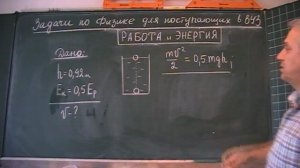 Задачи по физике для поступающих в ВУЗ
РАБОТА и ЭНЕРГИЯ
Дано:
h=0,92м
Eк=0,5Ep
v-?
mv²/2 = 0,5mgh;